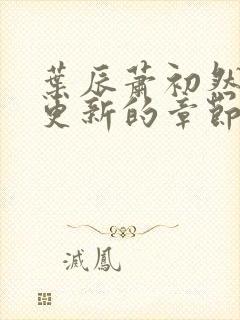 葉辰蕭初然
更新的章節
滅鳳